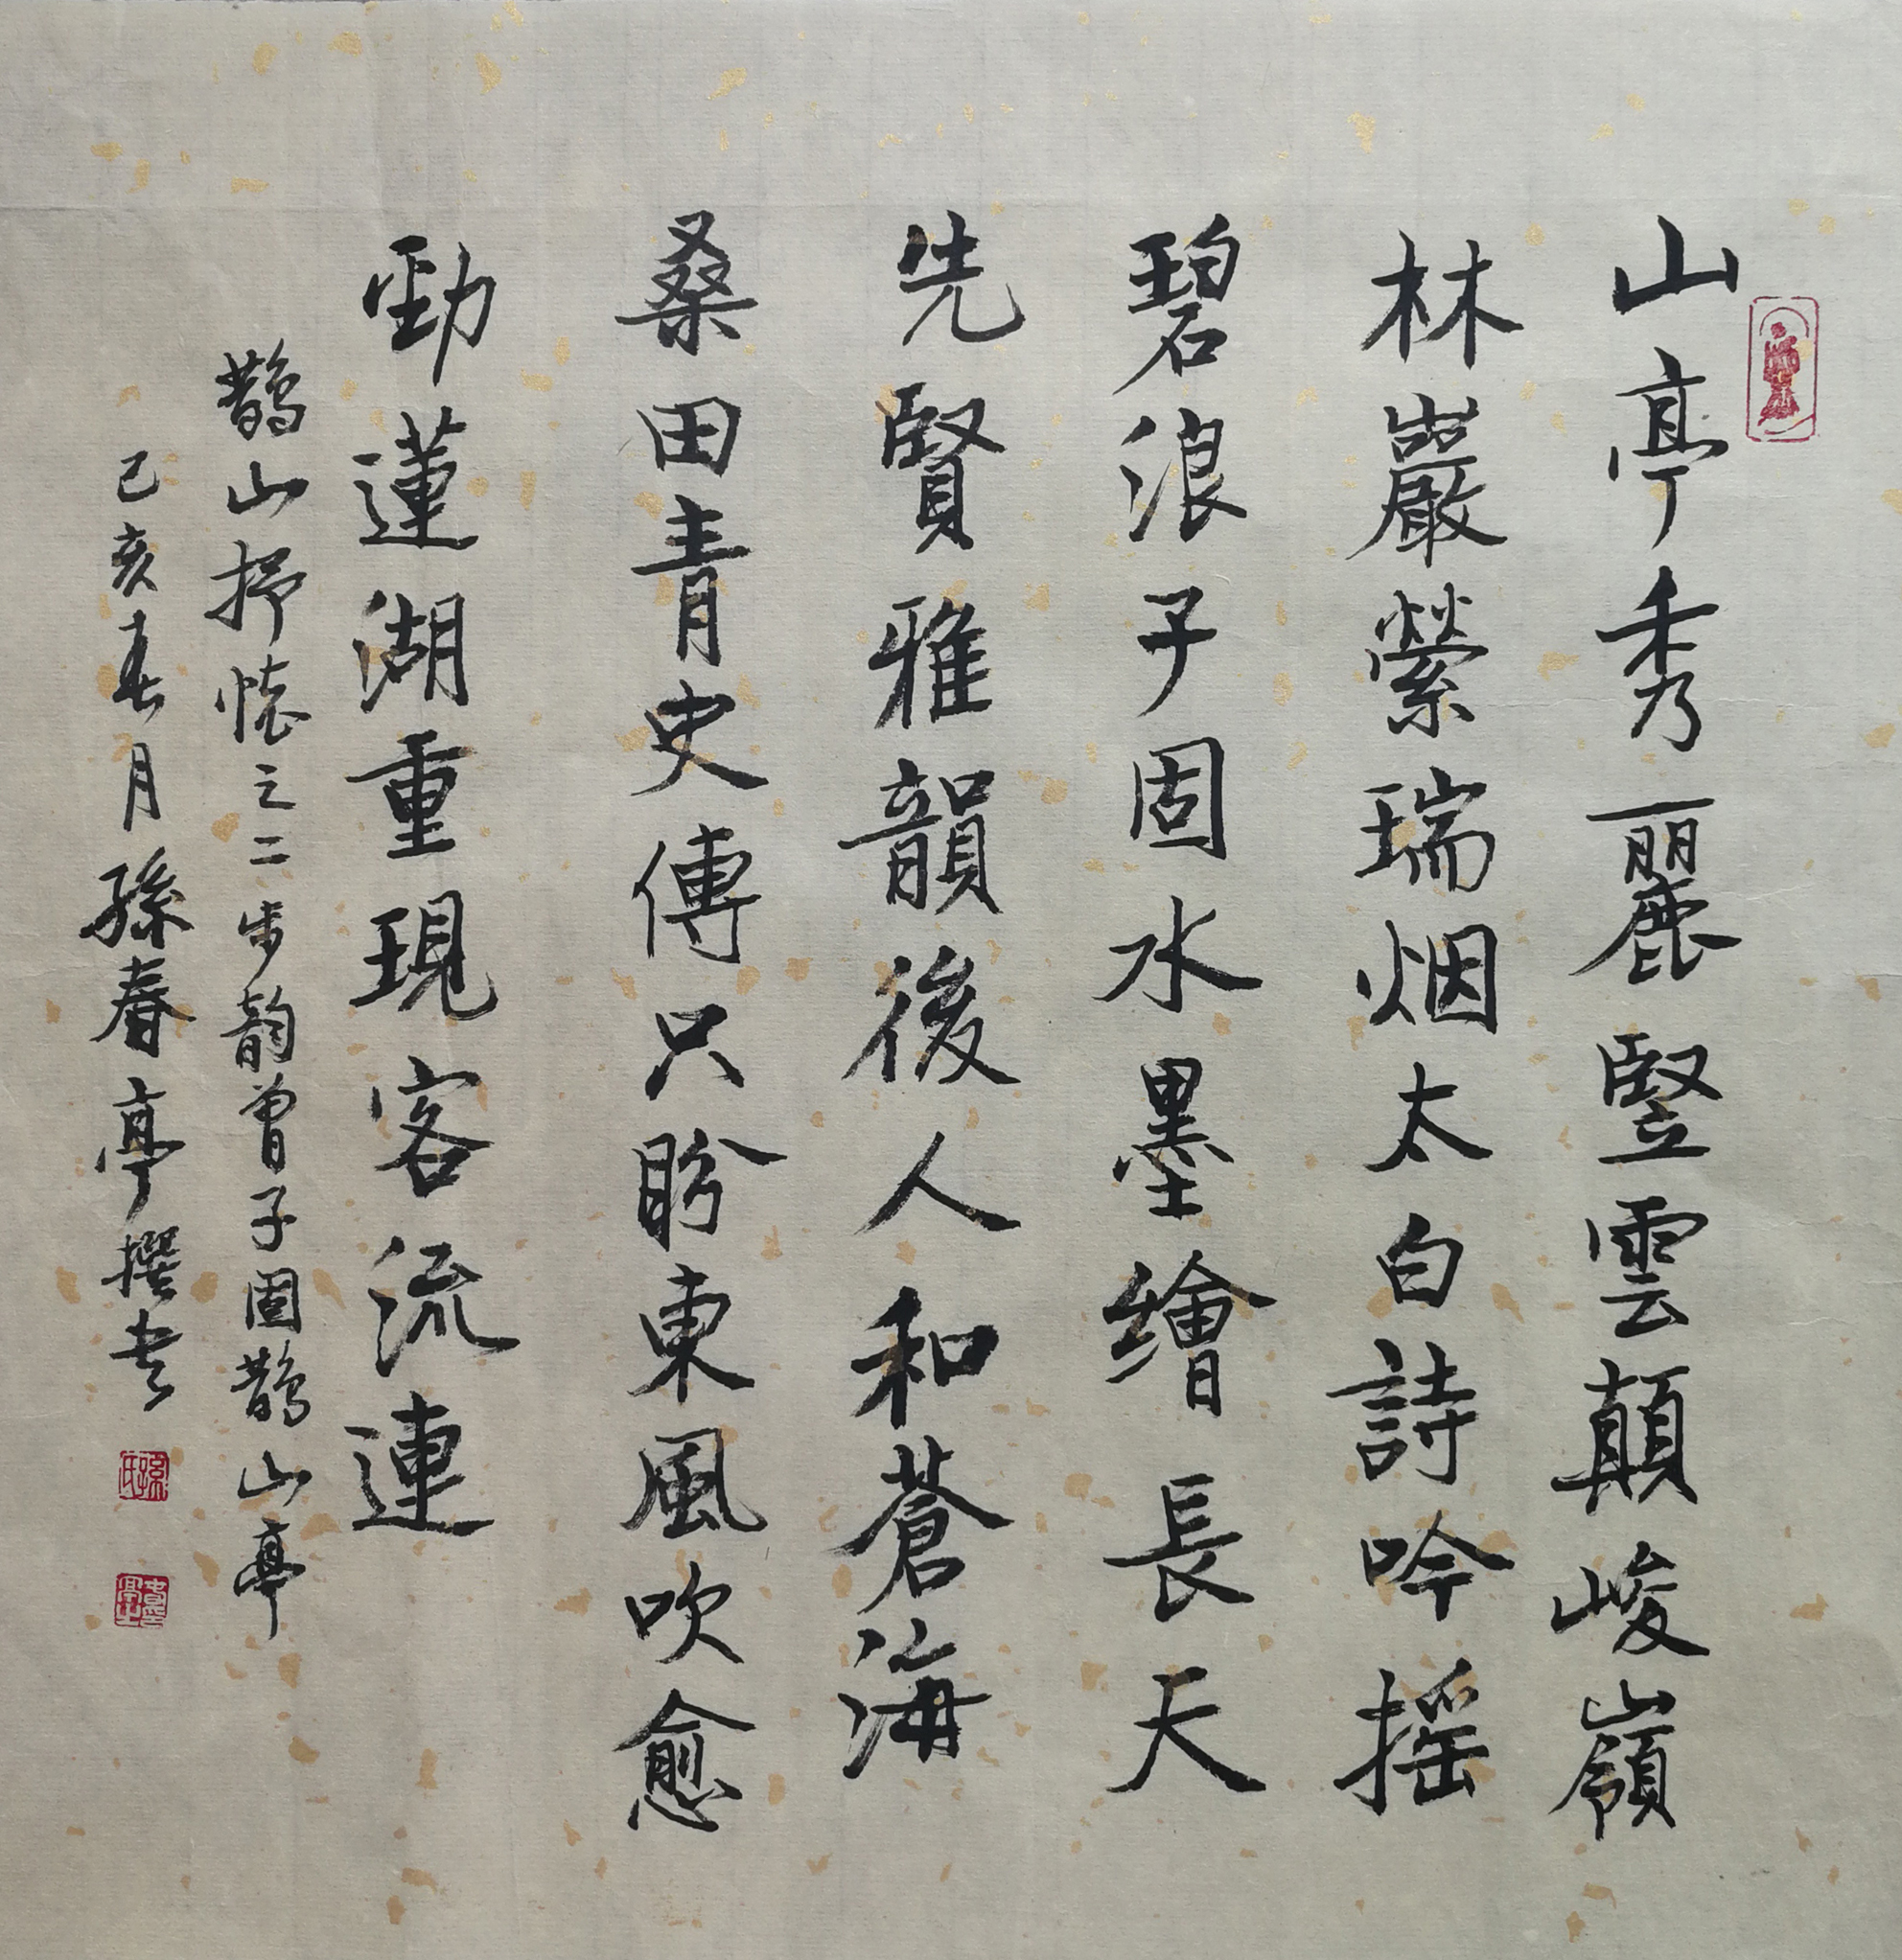 山亭秀麗豎雲顛峻嶺
林巖縈瑞烟太白詩吟摇
碧浪子固水墨繪長天
先賢雅韻後人和蒼海
桑田青史傳只盼東風吹愈
勁蓮湖重現客流連
鵲山抒懷之二步韵曾子固鵲山亭
己亥春月孫春亭撰书